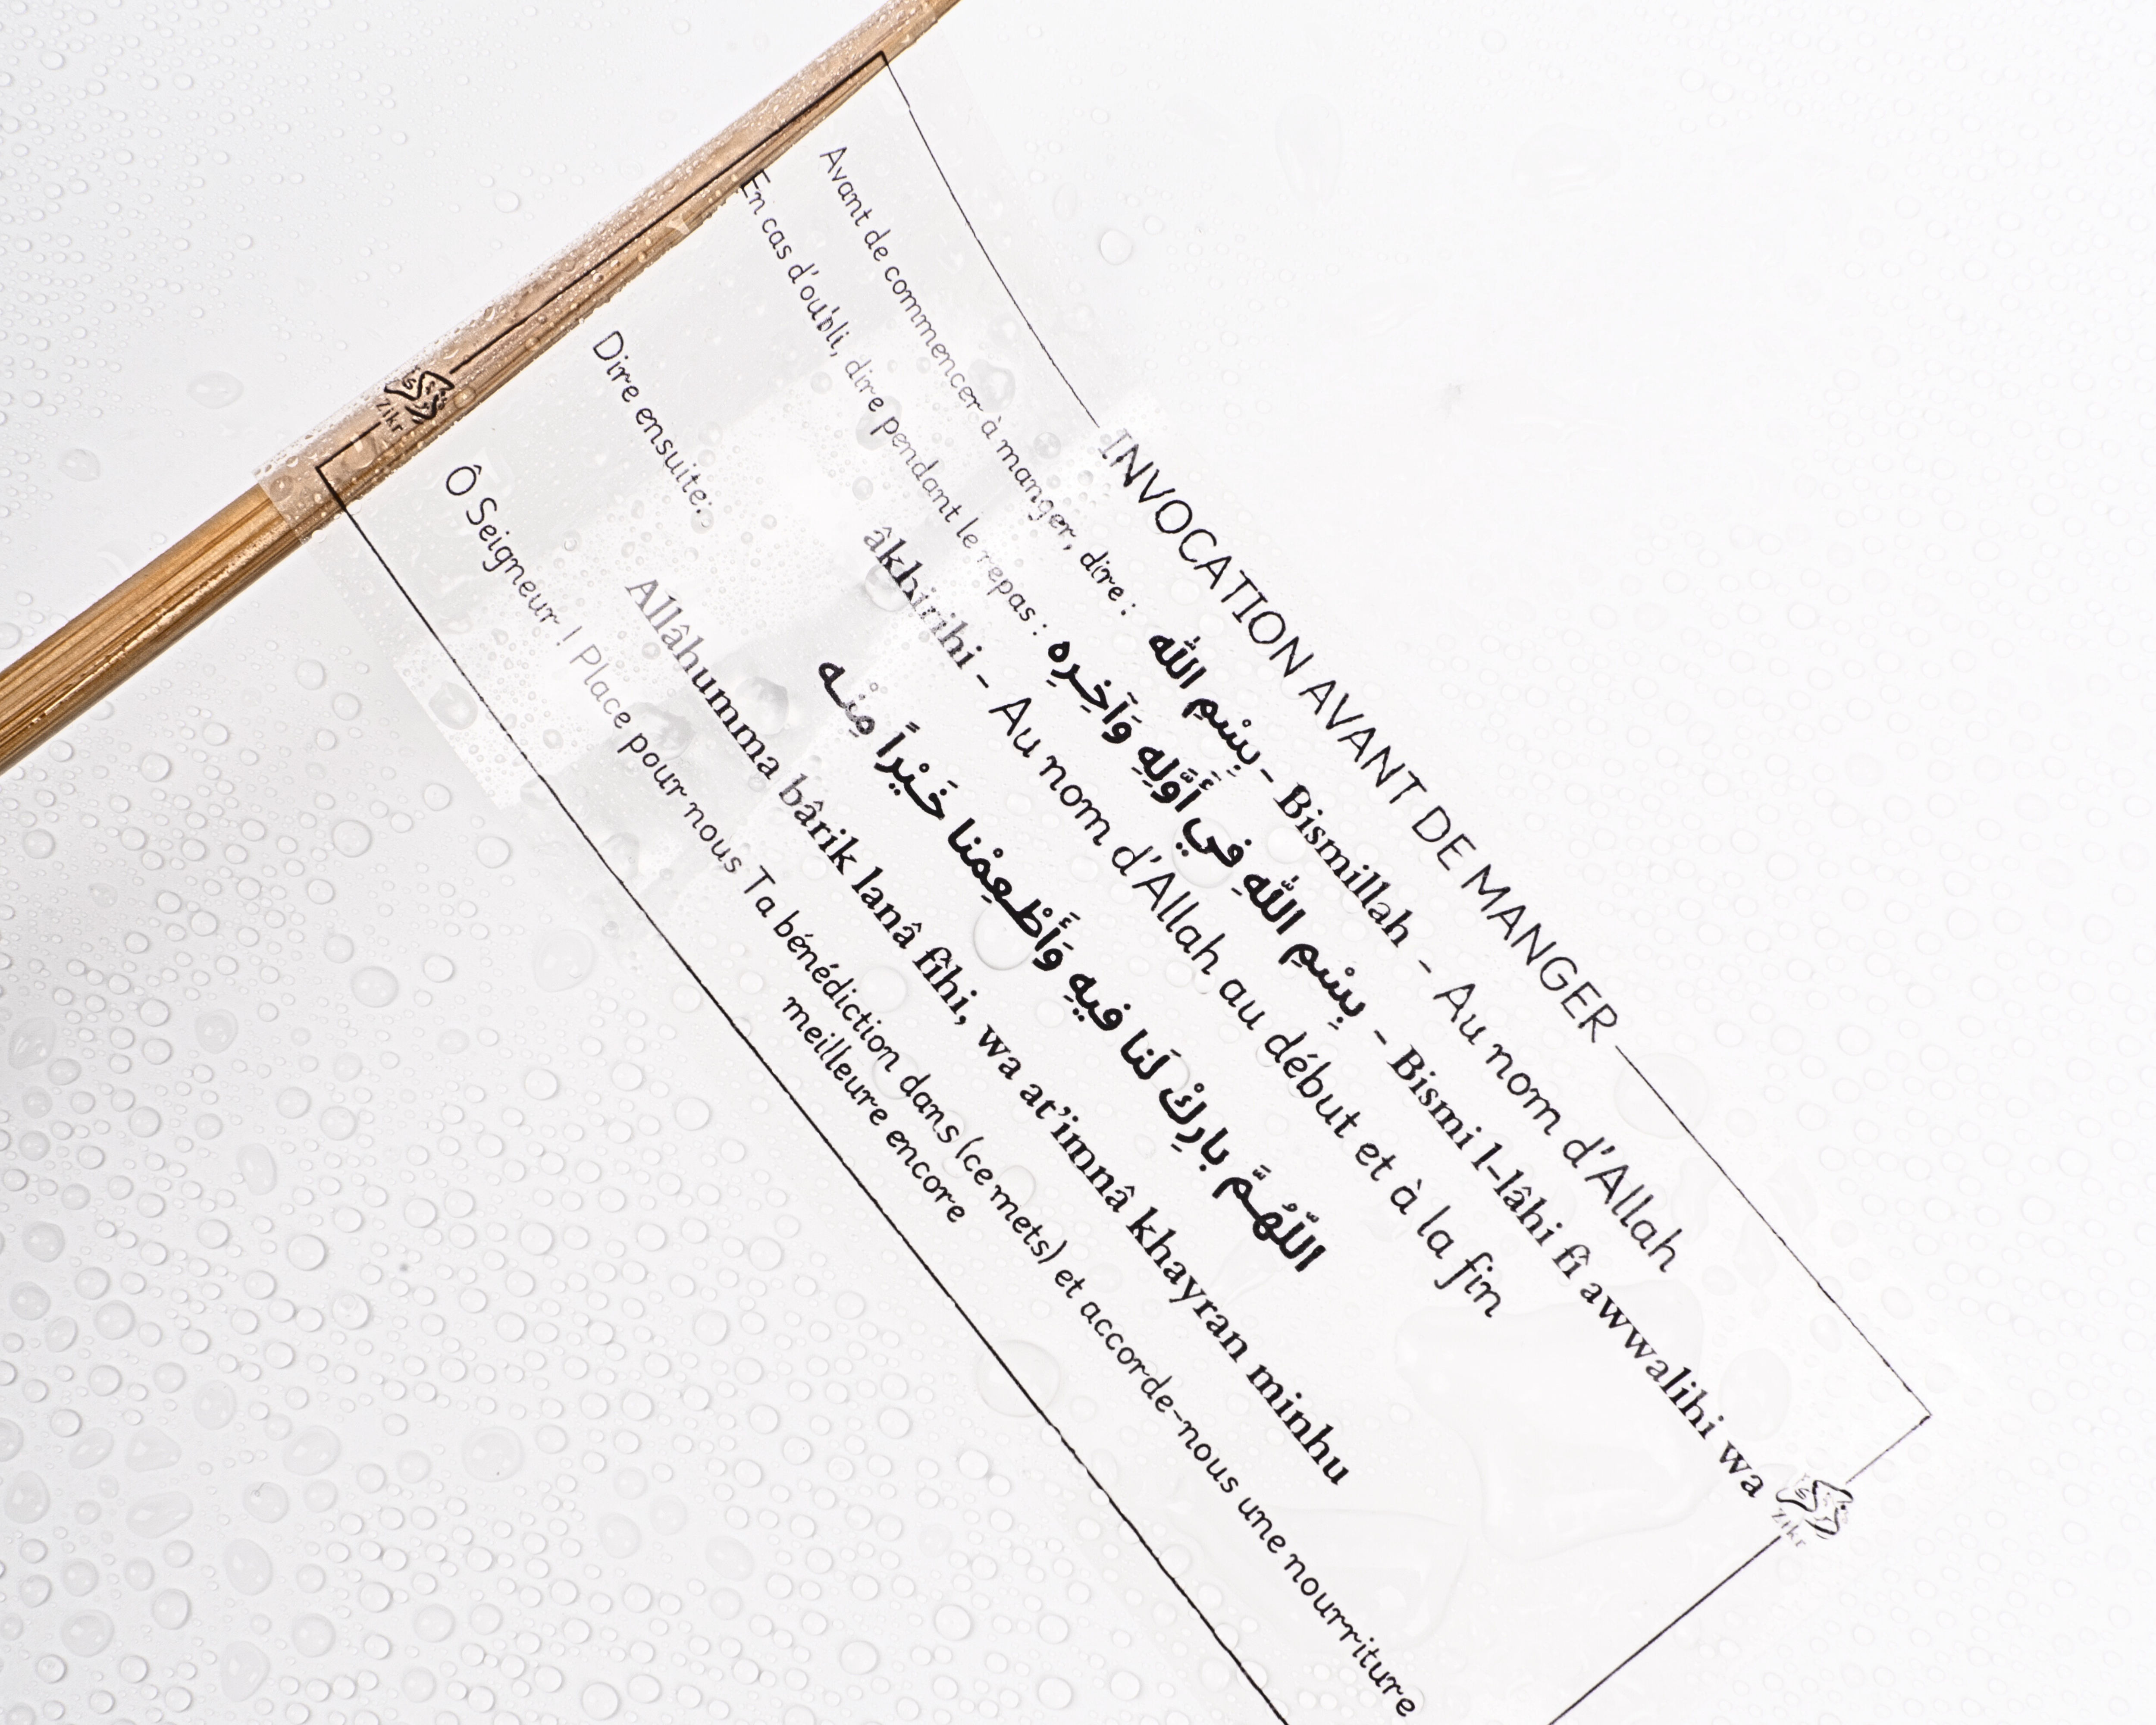 INVOCATION AVANT DE MANGER
Avant de commencer à manger, dire : بِسْمِ الله - Bismillah - Au nom d'Allah
En cas d'oubli, dire pendant le repas : بِسْمِ اللهِ فِي أَوَّلِهِ وَآخِرِهِ - Bismi l-lâhi fî awwalihi wa
âkhirihi - Au nom d'Allah au début et à la fin
Dire ensuite:
اللّهُـمَّ بارِكْ لَنا فيهِ وَأَطْـعِمْنا خَـيْراً مِنْـه
Allâhumma bârik lanâ fîhi, wa at'imnâ khayran minhu
Ô Seigneur ! Place pour nous Ta bénédiction dans (ce mets) et accorde-nous une nourriture
meilleure encore
Zikr
Zikr